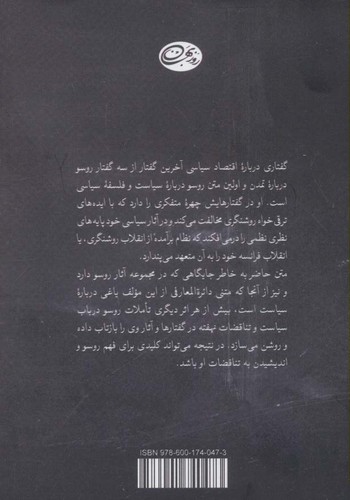 روزبهان
گفتاری دربارهٔ اقتصاد سیاسی آخرین گفتار از سه گفتار روسو
دربارهٔ تمدن و اولین متن روسو دربارهٔ سیاست و فلسفهٔ سیاسی
است. او در گفتارهایش چهرهٔ متفکری را دارد که با ایده‌های
ترقی خواه روشنگری مخالفت می‌کند و در آثار سیاسی خود پایه‌های
نظری نظمی را درمی‌افکند که نظام برآمده از انقلاب روشنگری، یا
انقلاب فرانسه خود را به آن متعهد می‌پندارد.
متن حاضر به خاطر جایگاهی که در مجموعه آثار روسو دارد
و نیز از آنجا که متنی دائرة‌المعارفی از این مؤلف یاغی دربارهٔ
سیاست است، بیش از هر اثر دیگری تأملات روسو در باب
سیاست و تناقضات نهفته در گفتارها و آثار وی را بازتاب داده
و روشن می‌سازد. در نتیجه می‌تواند کلیدی برای فهم روسو و
اندیشیدن به تناقضات او باشد.
ISBN 978-600-174-047-3